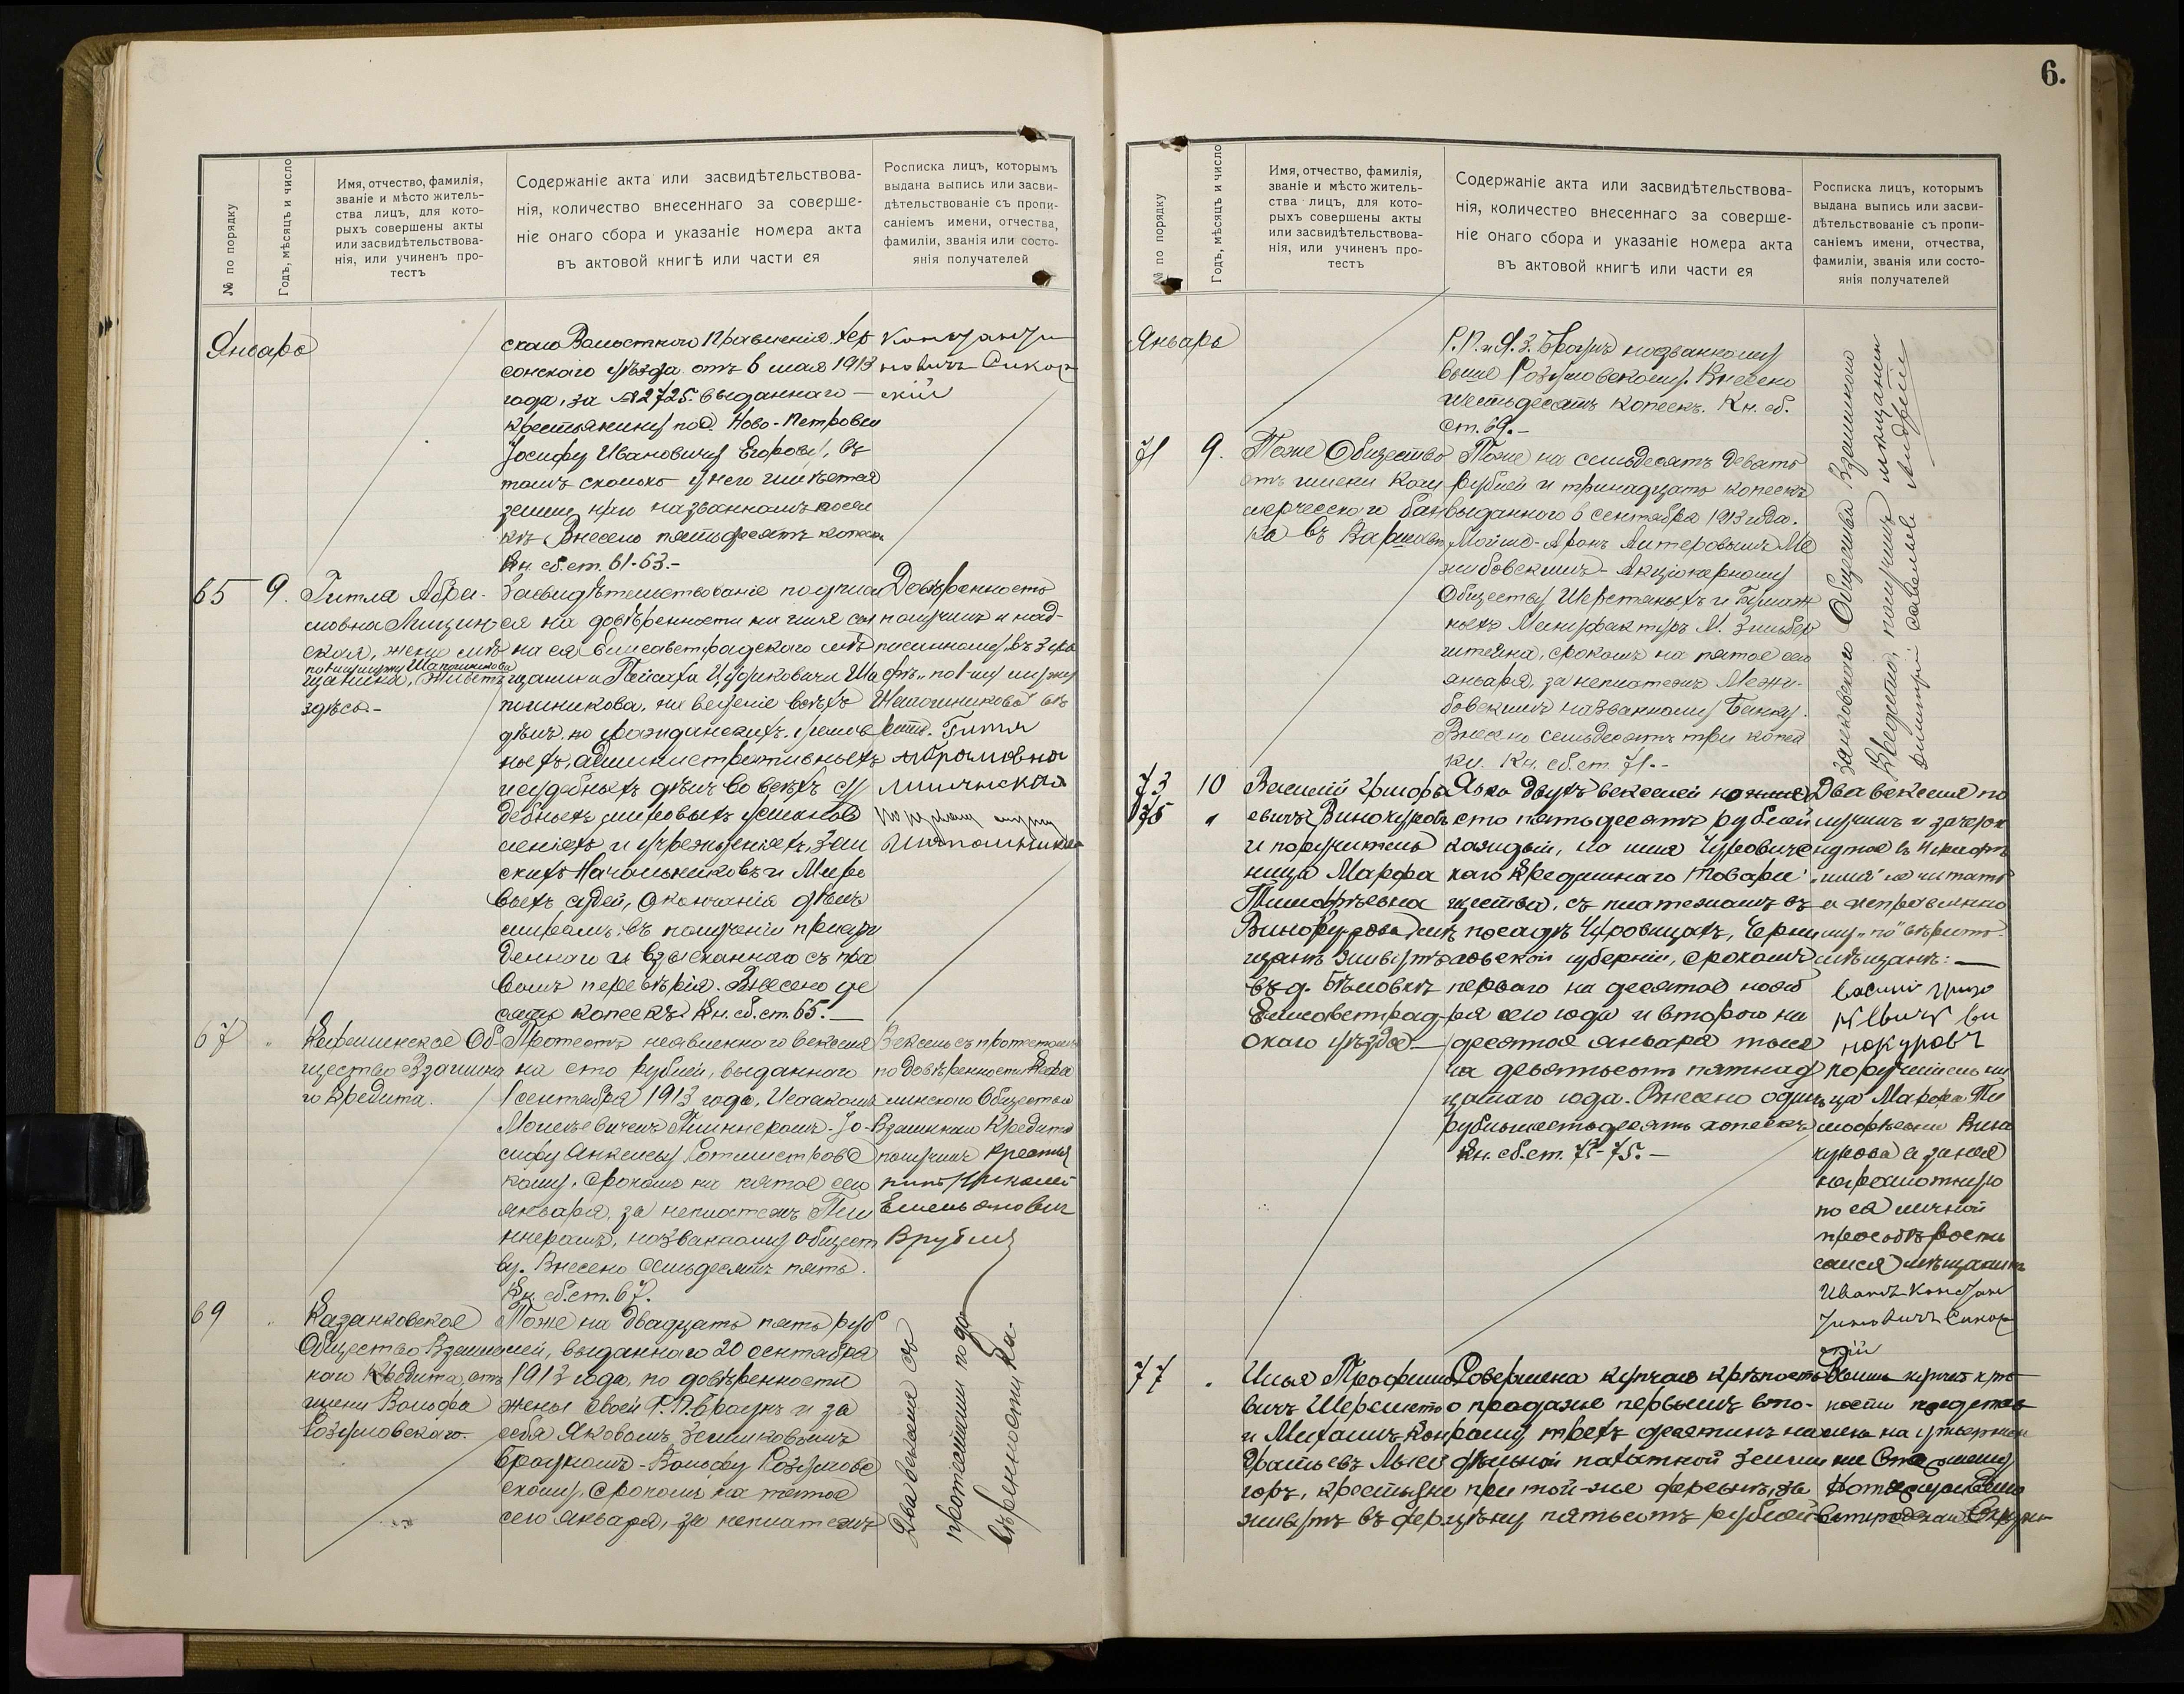 6.
№ по порядку
Годъ, мѣсяцъ и число
Имя, отчество, фамилія,
званіе и мѣсто житель-
ства лицъ, для кото-
рыхъ совершены акты
или засвидѣтельствова-
нія, или учиненъ про-
тестъ
Содержаніе акта или засвидѣтельствова-
нія, количество внесеннаго за соверше-
ніе онаго сбора и указаніе номера акта
въ актовой книгѣ или части ея
Росписка лицъ, которымъ
выдана выпись или засви-
дѣтельствованіе съ пропи-
саніемъ имени, отчества,
фамиліи, званія или состо-
янія получателей
Январь
скаго Волостного Правленія Хер
сонскаго уѣзда отъ 6 мая 1913
года, за №2725. выданнаго
крестьянину пос. Ново-Петровки
Іосифу Ивановичу Егорову, въ
томъ сколько у него имѣется
земли при названномъ посел
кѣ. Внесено пятьдесятъ копеекъ
Кн. сб. ст. 61-63.-
Константи
новичъ Сикор
скій
65
9.
Гитля Абра-
мовна Лищин
ская, жена мѣ
по нашему мужу Шапошникова
щанина, живетъ
здѣсь.-
Засвидѣтельствованіе подписи
ея на довѣренности на имя сы
на ея Елисаветградскаго мѣ
щанина Пейсаха Ицуковича Ша
пошникова, на веденіе всѣхъ
дѣлъ по гражданскихъ,
ныхъ, административныхъ
и судебныхъ дѣлъ во всѣхъ су
дебныхъ, мировыхъ установ
леніяхъ и учрежденіяхъ, Зем
скихъ Начальниковъ и Миро
выхъ судей, окончанія дѣлъ
миромъ, въ полученіи присуж
деннаго и взысканнаго съ пра
вомъ перевѣрія. Внесено де
сять копеекъ Кн. сб. ст. 65.—
Довѣренность
получилъ и над-
писанному въ 3 гра
фѣ „по 1-му мужу
Шапошникова" вѣ
рить. Гитля
Абрамовна
Лищинская
по первому мужу
Шапошникова
67
"
Херсонское Об-
щество Взаимна
го Кредита.
Протестъ неявленнаго векселя
на сто рублей, выданнаго
1 сентября 1913 года, Исаакомъ
Мошевичемъ Пиннеромъ - Іо-
сифу Анкелеву Ротмистровс
кому, срокомъ на пятое сего
января, за неплатежъ Пи
ннеромъ, названному Общест
ву. Внесено семьдесятъ пять.
Кн. сб. ст. 67.
Вексель съ протестомъ
по довѣренности Херсо
нскаго Общества
Взаимнаго Кредита
получилъ Крестья
нинъ Николай
Емельяновичъ
Врублу
69
"
Казанковское
Общество Взаим
наго Кредита, отъ
имени Вольфа
Розумовскаго.
Тоже на двадцать пять руб
лей, выданнаго 20 сентября
1913 года, по довѣренности
жены своей Р. П. Браунъ и за
себя Яковомъ Зеликовымъ
Брауномъ - Вольфу Розумовс
кому, срокомъ на пятое
сего Января, за неплатежъ
Два векселя съ
протестами по до
вѣренности Ка-
№ по порядку
Годъ, мѣсяцъ и число
Имя, отчество, фамилія,
званіе и мѣсто житель-
ства лицъ, для кото-
рыхъ совершены акты
или засвидѣтельствова-
нія, или учиненъ про-
тестъ
Содержаніе акта или засвидѣтельствова-
нія, количество внесеннаго за соверше-
ніе онаго сбора и указаніе номера акта
въ актовой книгѣ или части ея
Росписка лицъ, которымъ
выдана выпись или засви-
дѣтельствованіе съ пропи-
саніемъ имени, отчества,
фамиліи, званія или состо-
янія получателей
Январь
Р. П. и Я. З. Браунъ названному
выше Розумовскому. Внесено
шестьдесятъ копеекъ. Кн. сб.
ст. 69.-
занковскаго Общества Взаимнаго
Кредита, получилъ мѣщанин
Димитрій Савельев Андрейс
71
9.
Тоже Общество
отъ имени Ком
мерческаго бан
ка въ Варшавѣ
Тоже на семьдесятъ девять
рублей и тринадцать копеекъ
выданнаго 6 сентября 1913 года.
Мойше-Аронъ Литеровымъ Ме
жибовскимъ - Акціонерному
Обществу Шерстяныхъ и Бумаж
ныхъ Мануфактуръ М. Зильбер
штейна, срокомъ на пятое сего
января, за неплатежъ Межи-
бовскимъ названному Банку.
Внесено семьдесятъ три копей
ки. Кн. сб. ст. 71.-
73
10
75
"
Василій Григорь
евичъ Винокуровъ
и поручитель
ница Марфа
Тимофѣевна
Винокурова мѣ
щане живутъ
въ д. Бѣловкѣ
Елисаветград
скаго уѣзда.-
Явка двухъ векселей
сто пятьдесятъ рублей
каждый, на имя Чуровичс
каго Кредитнаго Товари
щества, съ платежомъ въ
посадѣ Чуровичахъ, Черни
говской губерніи, срокомъ
перваго на десятое нояб
ря сего года и второго на
десятое января тыся
ча девятьсот пятнад
цатаго года. Внесено одинъ
рубль шестьдесятъ копеекъ
Кн. сб. ст. 73-75.-
Два векселя по
лучилъ и зачерк
нутое въ 4 графѣ
„имя" не читать
а исправленно
му „по" вѣрить.
мѣщанъ: —
Василій Григо
рьевичъ Ви
нокуровъ
поручительни
ца Марфа Ти
мофѣевна Вино
курова а за нея
неграмотную
по ея личной
просьбѣ роспи
сался мѣщанинъ
Иванъ Констан
тиновичъ Сикор
скій
77
"
Илья Трофимо
вичъ Шереметьо
и Михаилъ Кон
дратьевъ Лыси
горъ, крестьяне
живутъ въ дер
Совершена купчая крѣпость
о продажѣ первымъ вто-
рому трехъ десятинъ на
дѣльной пахатной земли
при той-же деревнѣ, за
цѣну пятьсотъ рублей
Выпись купчей крѣ
пости представ
лена на утвержде
ніе Старшему
Нотаріусу Елиса
ветградскаго Окруж-